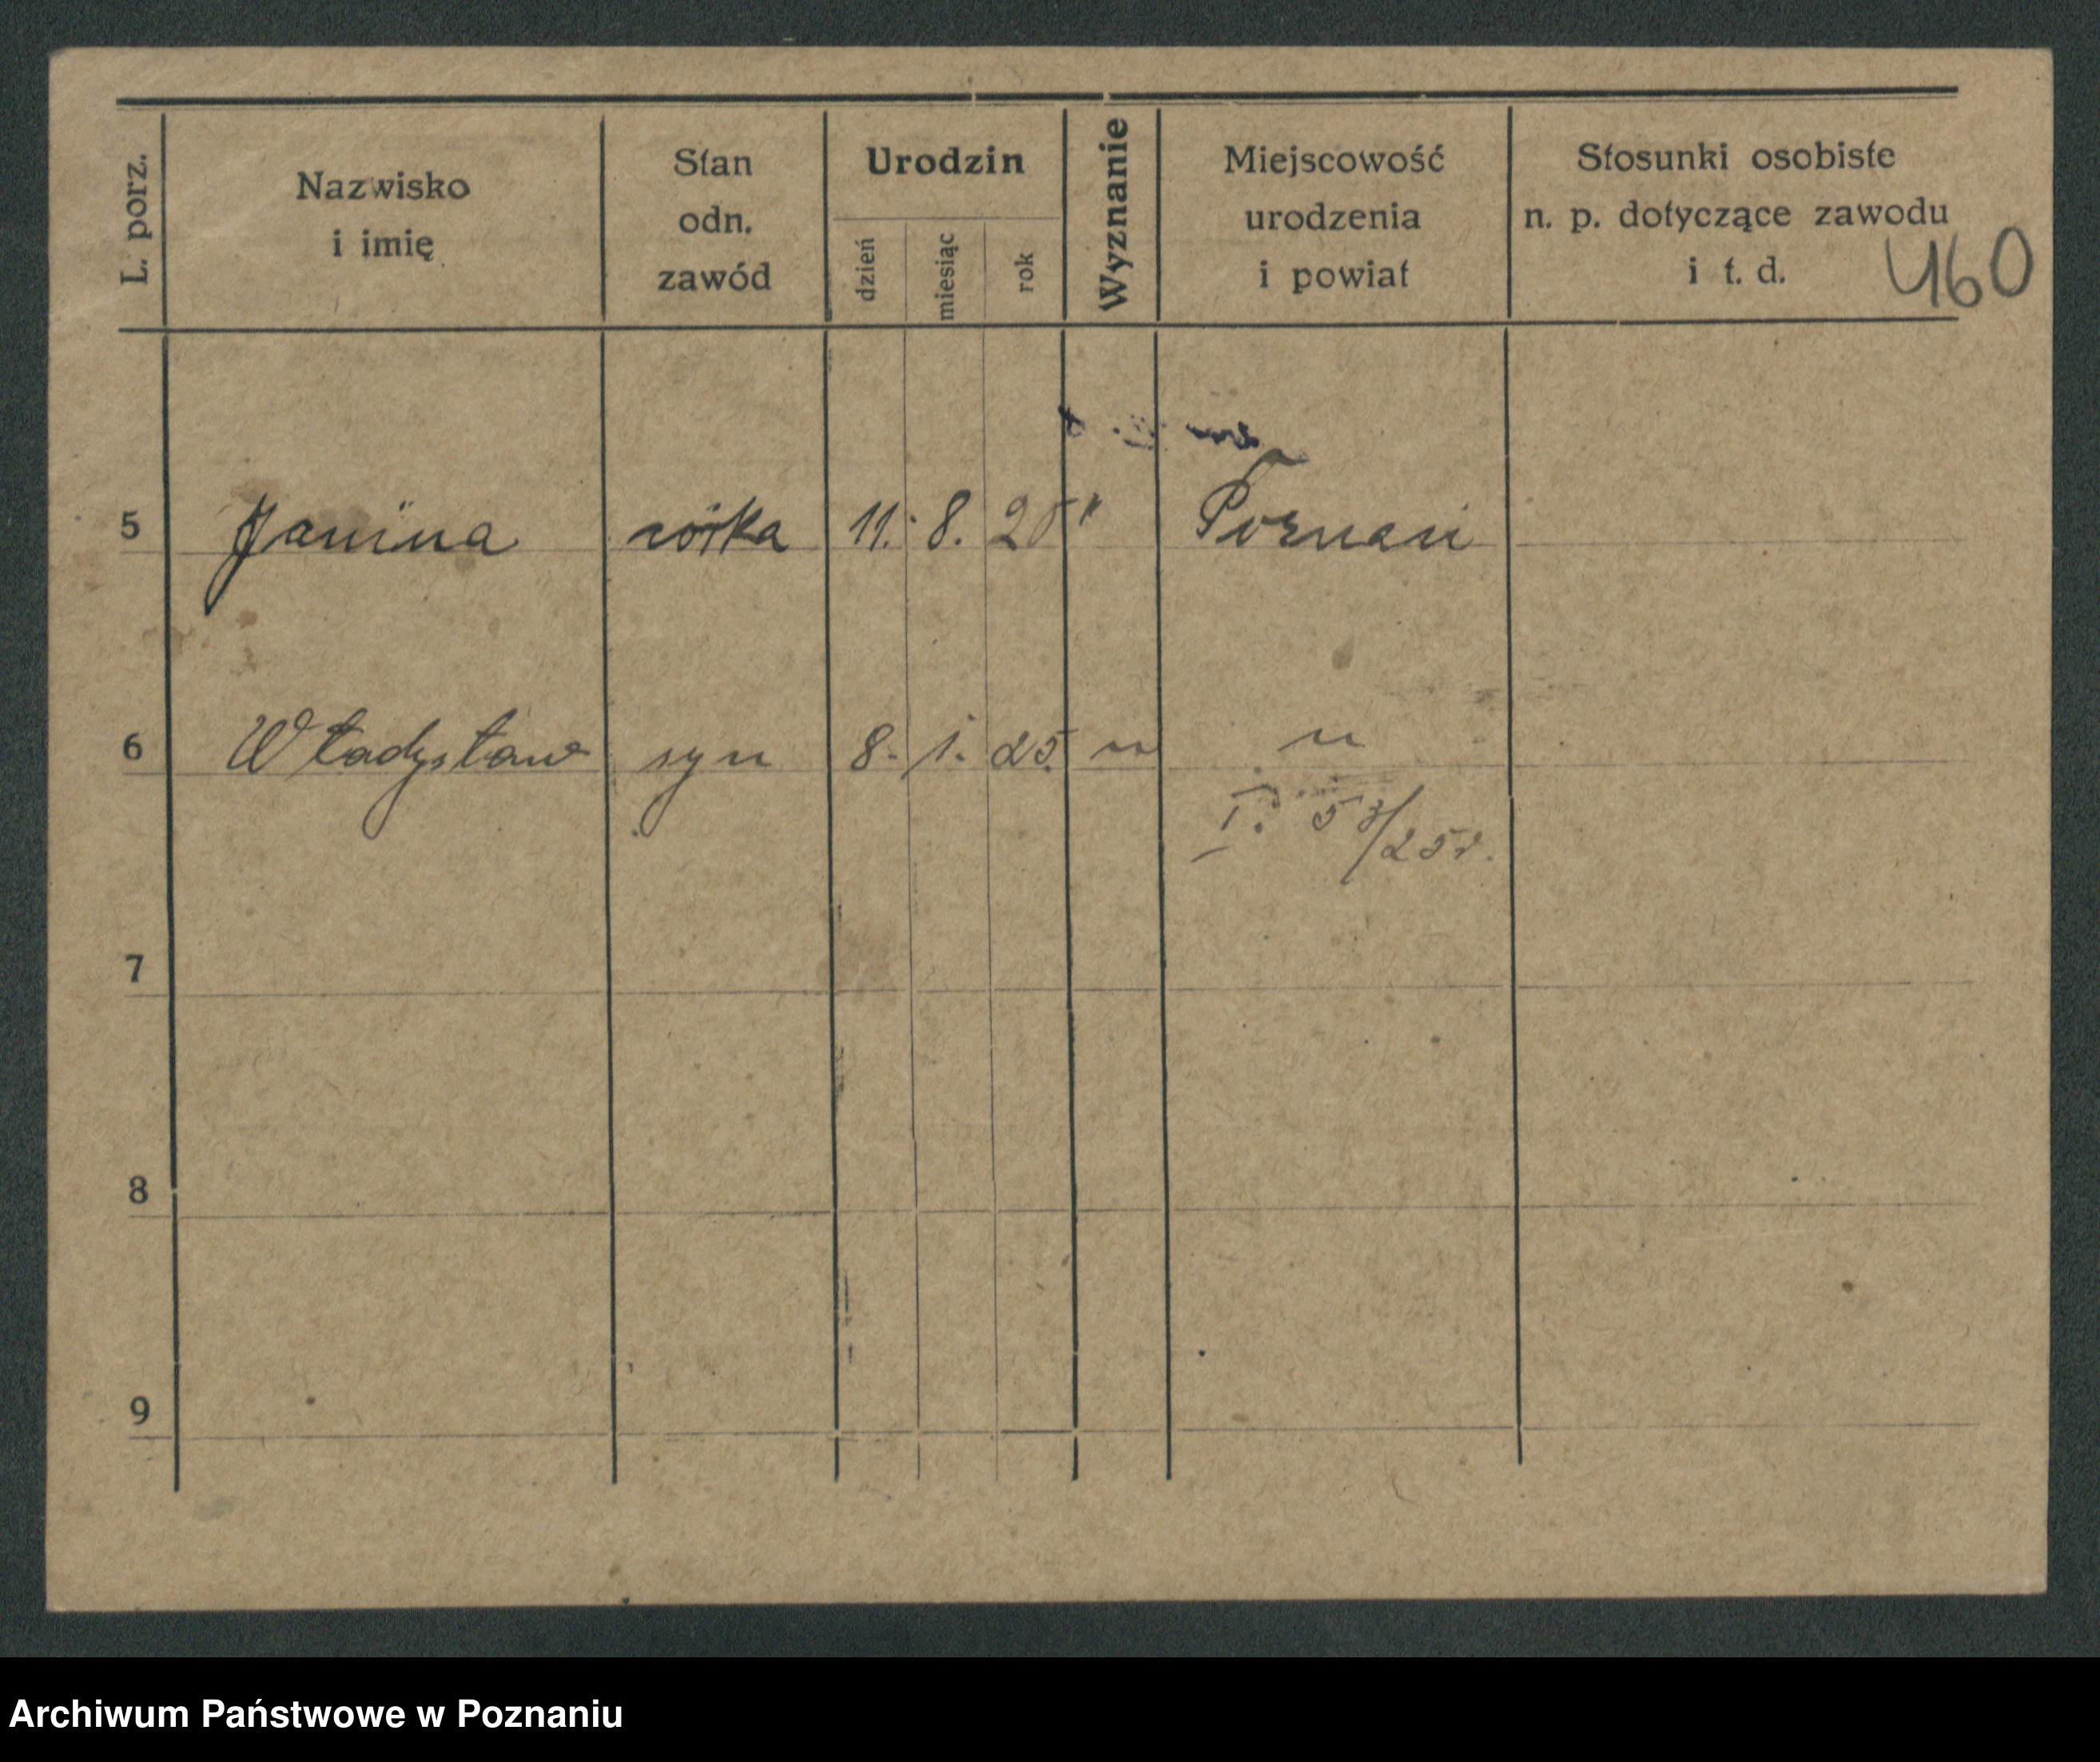 L. porz.
Nazwisko
i imię
Stan
odn.
zawód
Urodzin
dzień
miesiąc
rok
Wyznanie
Miejscowość
urodzenia
i powiat
Stosunki osobiste
n. p. dotyczące zawodu
i t. d.
460
5 Janina córka 11. 8. 20 " Poznań
6 Władysław syn 8. 1. 25. " "
I. 5 3/25 r.
7
8
9
Archiwum Państwowe w Poznaniu